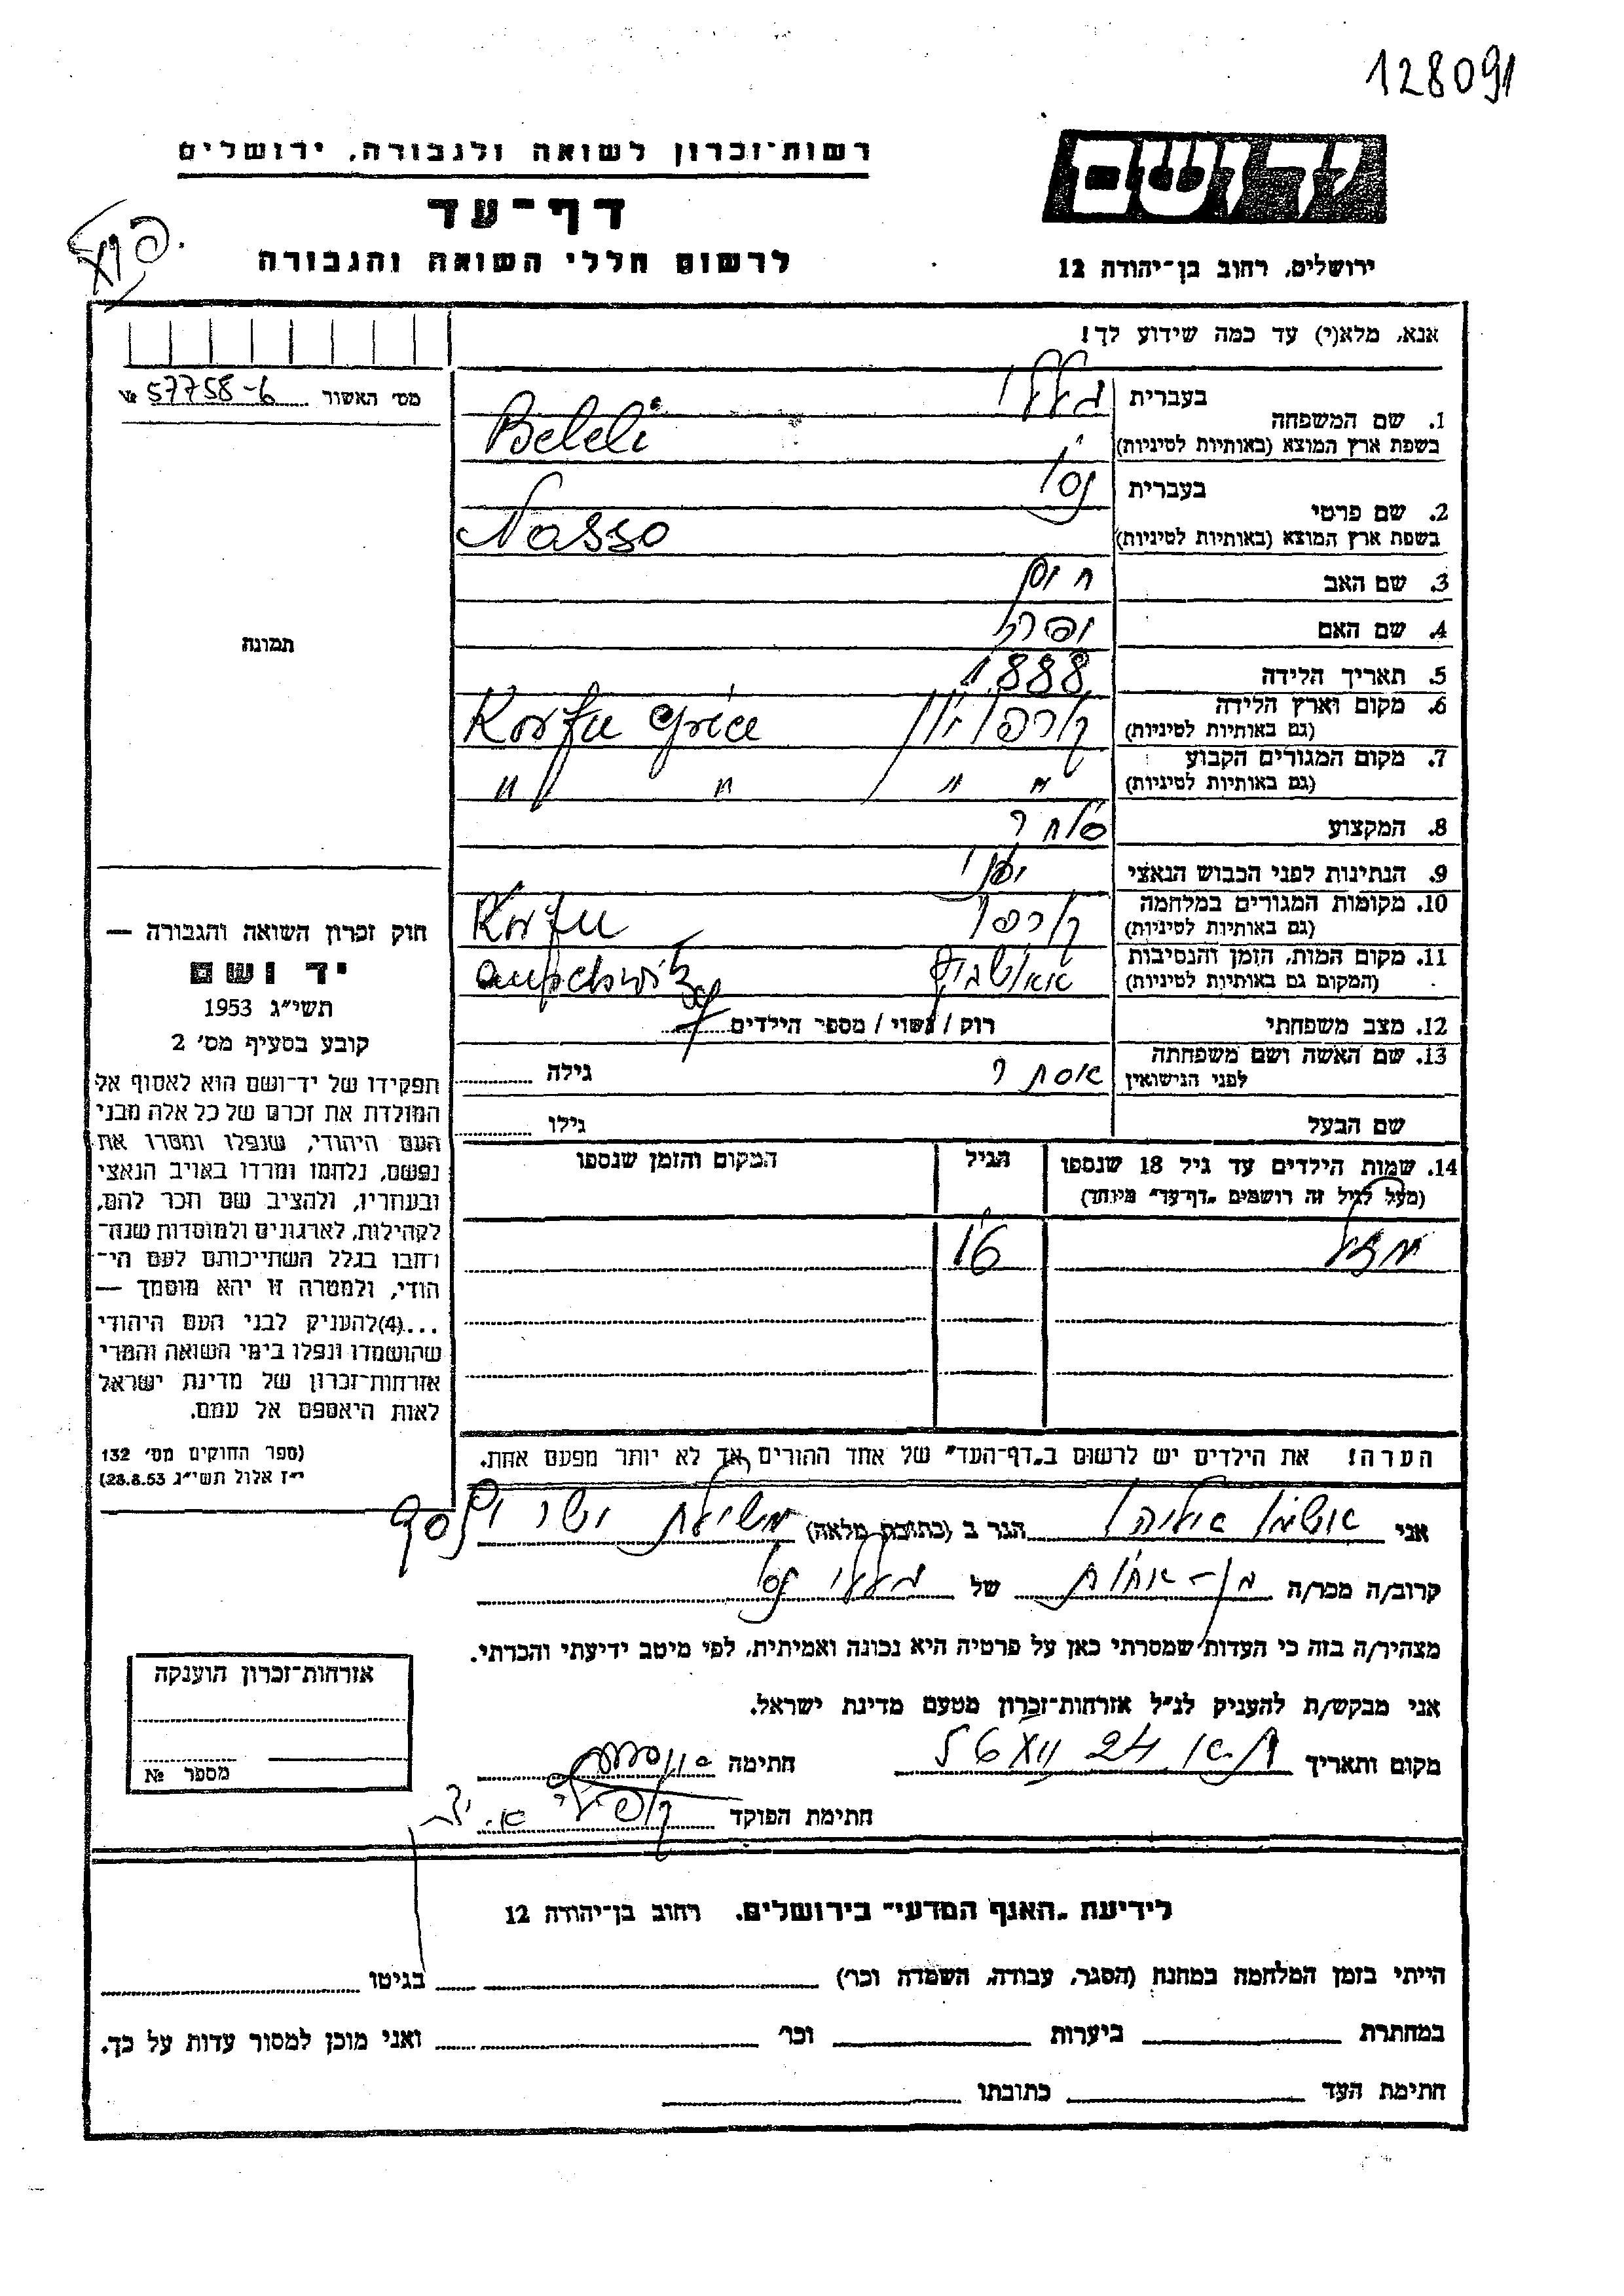 128091
רשות־זכרון לשואה ולגבורה, ירושלים
יד ושם
דף־עד
לרשום חללי השואה והגבורה
ירושלים, רחוב בן־יהודה 12
אנא, מלא(י) עד כמה שידוע לך!
מס׳ האשור 57758-6 №
1. שם המשפחה
בעברית בללי
בשפת ארץ המוצא (באותיות לטיניות) Beleli
2. שם פרטי
בעברית נסו
בשפת ארץ המוצא (באותיות לטיניות) Nasso
3. שם האב
4. שם האם
5. תאריך הלידה 1888
6. מקום וארץ הלידה קורפו יון Korfu Gréce
(גם באותיות לטיניות)
7. מקום המגורים הקבוע " " " "
(גם באותיות לטיניות)
8. המקצוע סוחר
9. הנתינות לפני הכבוש הנאצי יוני
10. מקומות המגורים במלחמה קורפו Korfu
(גם באותיות לטיניות)
11. מקום המות, הזמן והנסיבות
(המקום גם באותיות לטיניות)
12. מצב משפחתי רוק / נשוי / מספר הילדים
13. שם האשה ושם משפחתה אסתר גילה
לפני הנישואין
שם הבעל גילו
14. שמות הילדים עד גיל 18 שנספו הגיל המקום והזמן שנספו
(מעל לגיל זה רושמים „דף־עד״ מיוחד)
16
הערה! את הילדים יש לרשום ב„דף־העד״ של אחד ההורים אך לא יותר מפעם אחת.
תמונה
חוק זכרון השואה והגבורה —
יד ושם
תשי״ג 1953
קובע בסעיף מס׳ 2
תפקידו של יד־ושם הוא לאסוף אל
המולדת את זכרם של כל אלה מבני
העם היהודי, שנפלו ומסרו את
נפשם, נלחמו ומרדו באויב הנאצי
ובעוזריו, ולהציב שם וזכר להם,
לקהילות, לארגונים ולמוסדות שנח־
רחבו בגלל השתייכותם לעם הי־
הודי, ולמטרה זו יהא מוסמך —
...(4)להעניק לבני העם היהודי
שהושמדו ונפלו בימי השואה והמרי
אזרחות־זכרון של מדינת ישראל
לאות היאספם אל עמם.
(ספר החוקים מס׳ 132
י״ז אלול תשי״ג 28.8.53)
אני אליהו הגר ב (כתובת מלאה)
קרוב/ה מכר/ה בן-אחות של בללי נסו
מצהיר/ה בזה כי העדות שמסרתי כאן על פרטיה היא נכונה ואמיתית, לפי מיטב ידיעתי והכרתי.
אני מבקש/ת להעניק לנ״ל אזרחות־זכרון מטעם מדינת ישראל.
מקום ותאריך 24 חתימה
חתימת הפוקד
אזרחות־זכרון הוענקה
מספר №
לידיעת „האגף המדעי״ בירושלים, רחוב בן־יהודה 12
הייתי בזמן המלחמה במחנה (הסגר, עבודה, השמדה וכר׳) בגיטו
במחתרת ביערות וכר׳ ואני מוכן למסור עדות על כך.
חתימת העד כתובתו